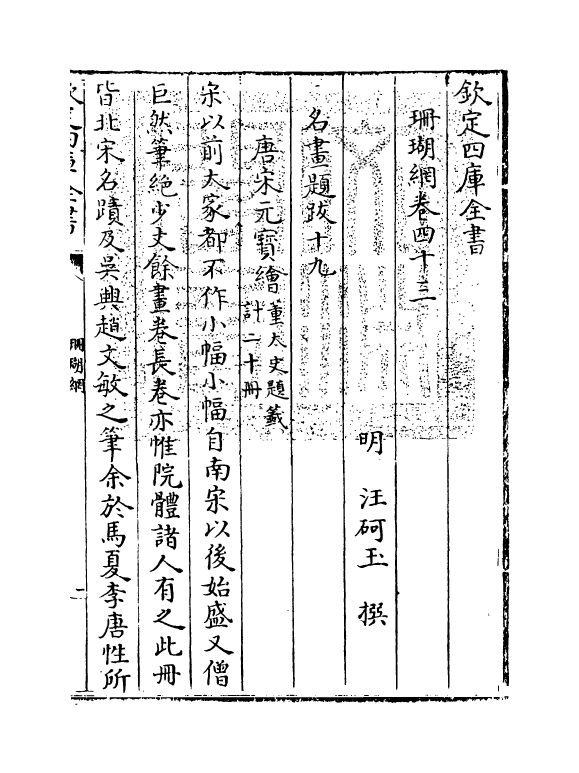 欽定四庫全書
珊瑚網卷四十三
明 汪砢玉 撰
名畫題跋十九
唐宋元寶繪董太史題籤計二十冊
宋以前大家都不作小幅小幅自南宋以後始盛又僧
巨然筆絕少丈餘畫卷長卷亦惟院體諸人有之此冊
皆北宋名蹟及吳興趙文敏之筆余於馬夏李唐性所
珊瑚網
一